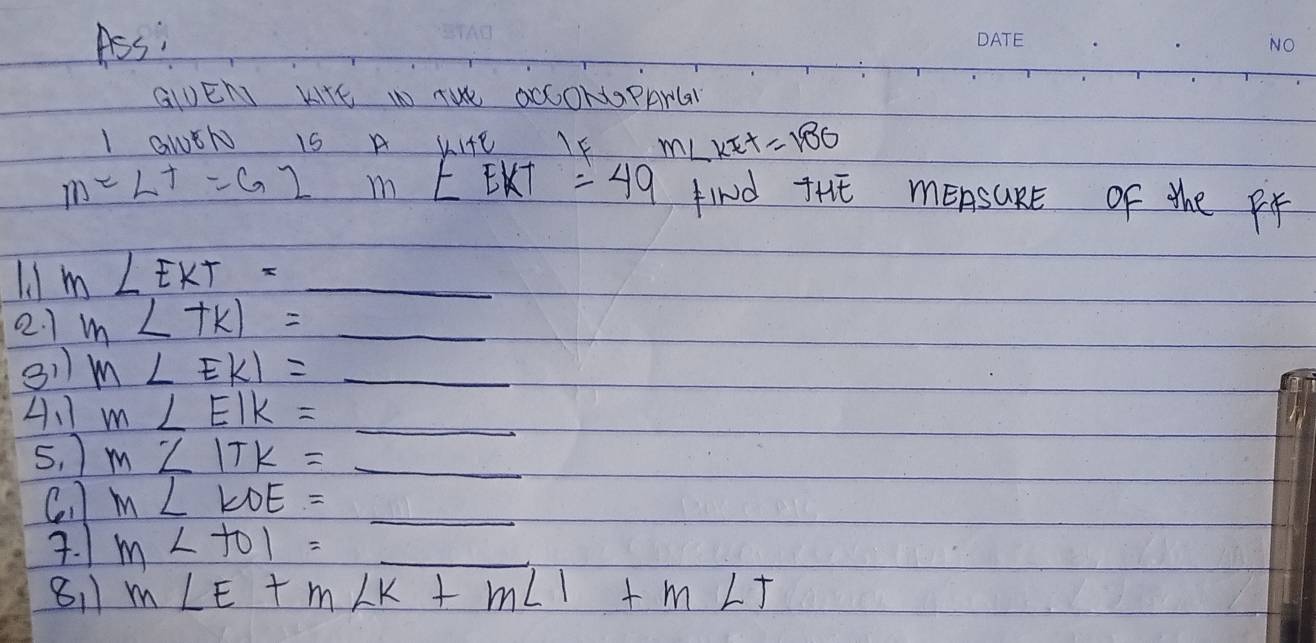 Ass:
DATE . . NO
GIVEN KITE IN THE ACCONGPANGI
1 GIVEN IS A KITE IF m∠KET=180
m=∠T=62 m E EKT = 49 FIND THE MEASURE OF the FF
1.) m ∠EKT = ______
2.) m ∠TKI = ______
3.) m ∠EKI = ______
4.) m ∠EIK = ______
5.) m ∠ITK = ______
6.) m ∠KOE = ______
7.) m ∠TOI = ______
8.) m∠E + m∠K + m∠I + m∠T